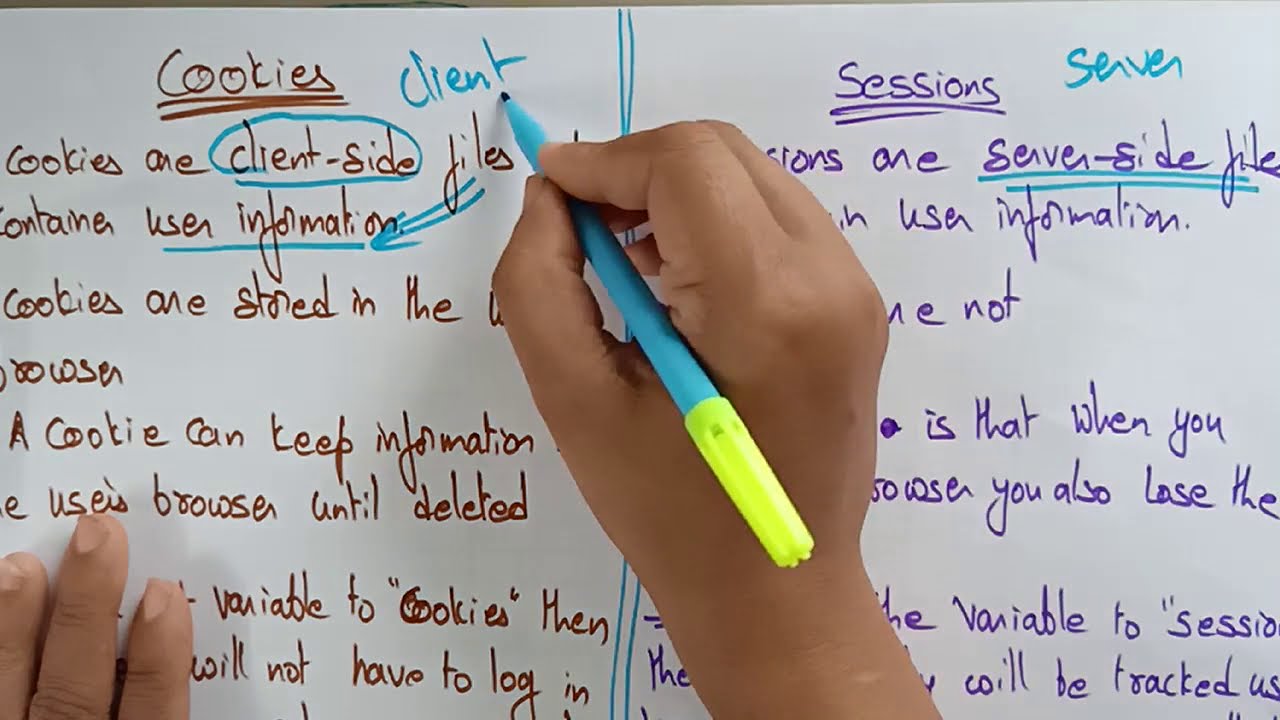 Cookies client
Cookies are client-side files
container user information.
Cookies are stored in the
browser
A Cookie can keep information
user's browser until deleted
variable to "Cookies" then
will not have to log in
Sessions server
are server-side file
user information.
not
is that when you
you also lose the
the variable to "session
the will be tracked us